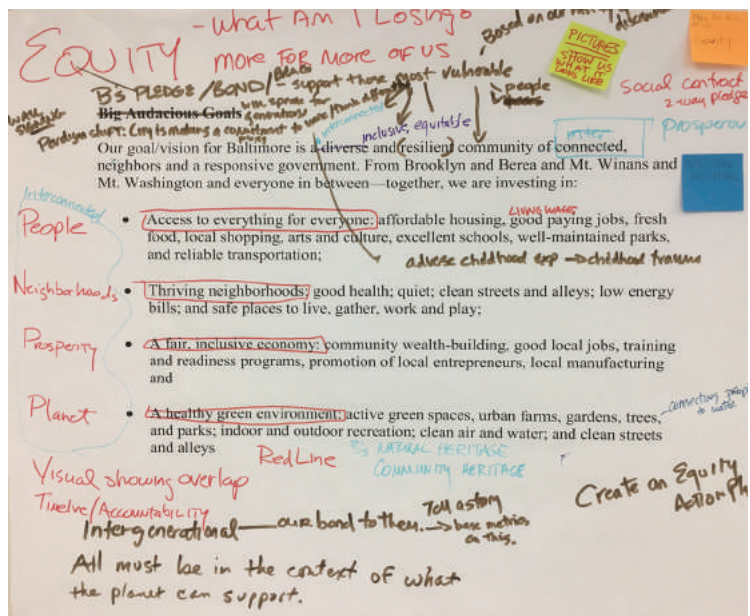 - What Am I Losing?
EQUITY
more for more of us
Based on our
B's PLEDGE/BOND/
- support those most vulnerable
people
PICTURES
SHOW US
WHAT IT
LOOKS LIKE
Equity
social contract
2-way pledge
prosperou
Big Audacious Goals
generations
Paradigm shift: City is making a commitment to
interconnected
inclusive, equitable
inter
Our goal/vision for Baltimore is a diverse and (resilient) community of connected,
neighbors and a responsive government. From Brooklyn and Berea and Mt. Winans and
Mt. Washington and everyone in between—together, we are investing in:
Interconnected
People
LIVING WAGES
• Access to everything for everyone: affordable housing, good paying jobs, fresh
food, local shopping, arts and culture, excellent schools, well-maintained parks,
and reliable transportation;
adverse childhood exp → childhood trauma
Neighborhoods
• Thriving neighborhoods; good health; quiet; clean streets and alleys; low energy
bills; and safe places to live, gather, work and play;
Prosperity
• A fair, inclusive economy: community wealth-building, good local jobs, training
and readiness programs, promotion of local entrepreneurs, local manufacturing
and
Planet
• A healthy green environment: active green spaces, urban farms, gardens, trees,
and parks; indoor and outdoor recreation; clean air and water; and clean streets
and alleys
connecting people
to water
RedLine
B's NATURAL HERITAGE
COMMUNITY HERITAGE
Visual showing overlap
Timelve/ACCOUNTABILITY
Create an Equity
Action Pl
Intergenerational — our bond to them. → Tell a story
base metrics
on this.
All must be in the context of what
the planet can support.